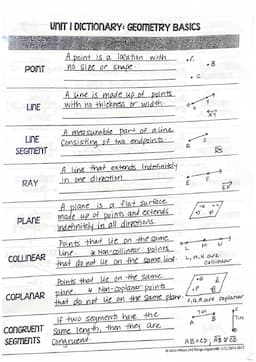 UNIT 1 DICTIONARY: GEOMETRY BASICS
POINT
A point is a location with
no size or shape.
• A
• B
• C
LINE
A line is made up of points
with no thickness or width.
LINE
SEGMENT
A measurable part of a line
consisting of two endpoints.
R
S
RS
RAY
A line that extends indefinitely
in one direction
E
F
EF
PLANE
A plane is a flat surface
made up of points and extends
indefinitely in all directions.
COLLINEAR
Points that lie on the same
line. * Non-collinear: points
that do not lie on the same line.
L M N
L, M, N are
collinear
COPLANAR
Points that lie on the same
plane * Non-coplanar: points
that do not lie on the same plane
are coplanar
CONGRUENT
SEGMENTS
If two segments have the
same length, then they are
Congruent.
7in
A B
7in
AB=CD, AB≅CD